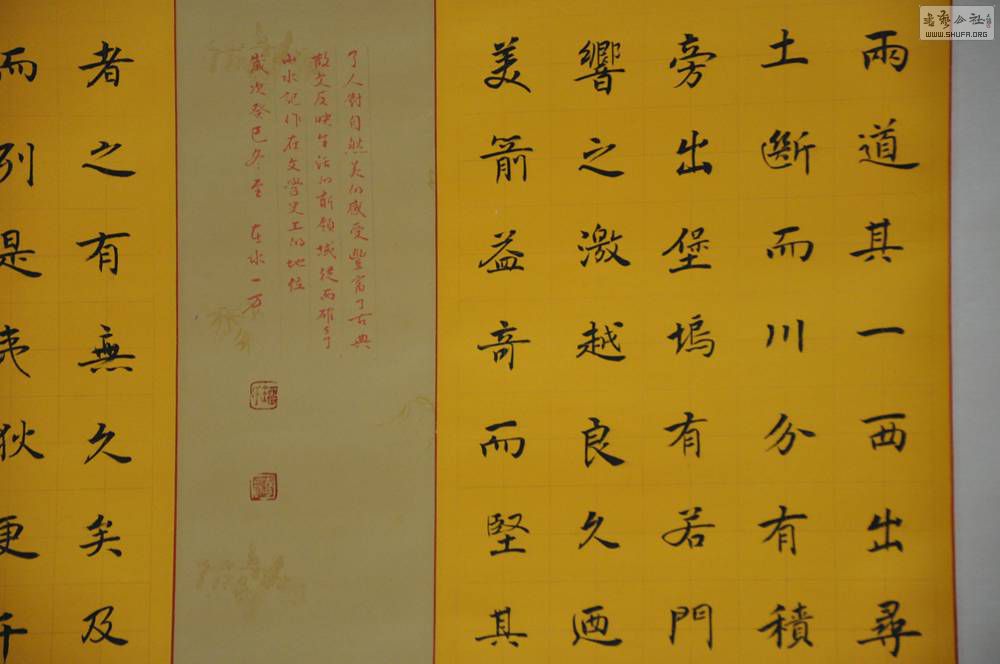 兩道其一西出尋
土斷而川分有積
旁出堡塢有若門
響之激越良久迺
美箭益奇而堅其
了人對自然美的感受豐富了古典
散文反映生活的新領域從而確立了
山水記作在文學史上的地位
歲次癸巳冬至
者之有無久矣及
而列是夷狄更千
书艺公社
WWW.SHUFA.ORG